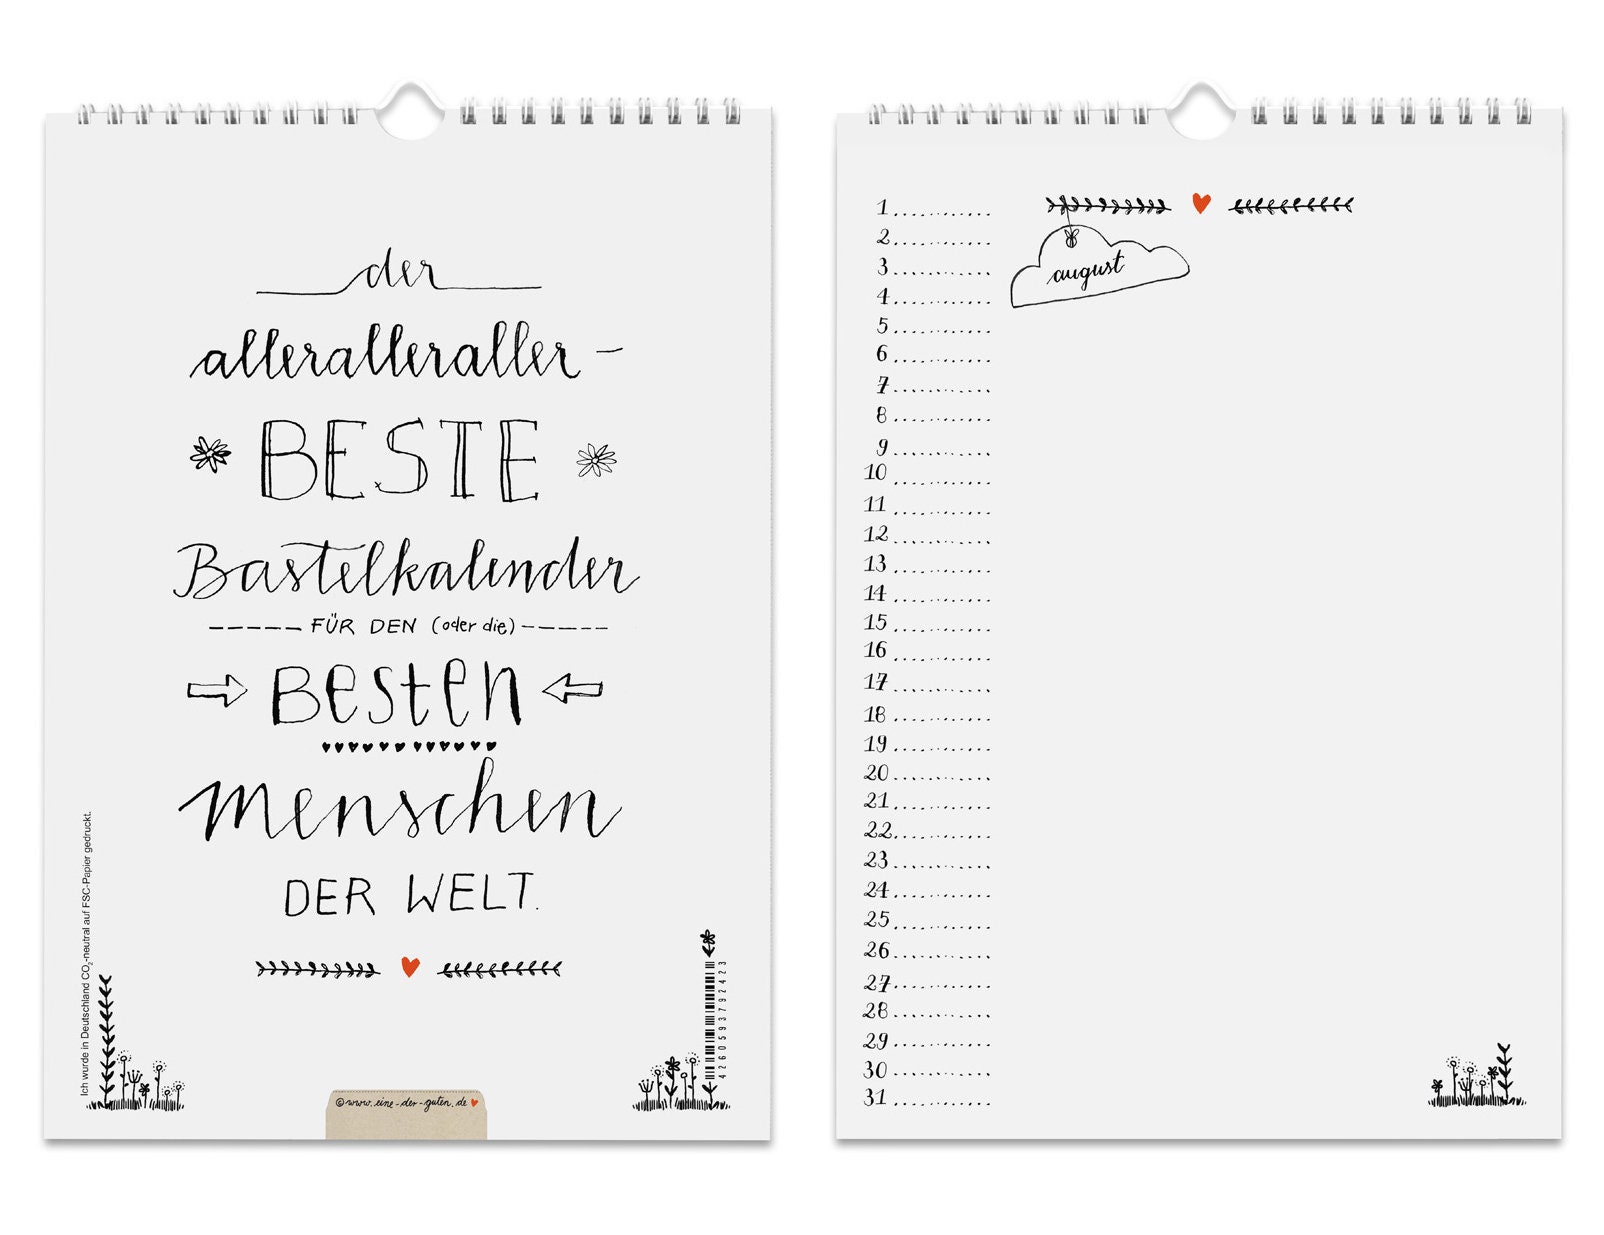 der
alleralleraller-
BESTE
Bastelkalender
FÜR DEN (oder die)
Besten
Menschen
DER WELT.
Ich wurde in Deutschland CO₂-neutral auf FSC-Papier gedruckt.
4260593792423
©www.eine-der-guten.de
august
1
2
3
4
5
6
7
8
9
10
11
12
13
14
15
16
17
18
19
20
21
22
23
24
25
26
27
28
29
30
31